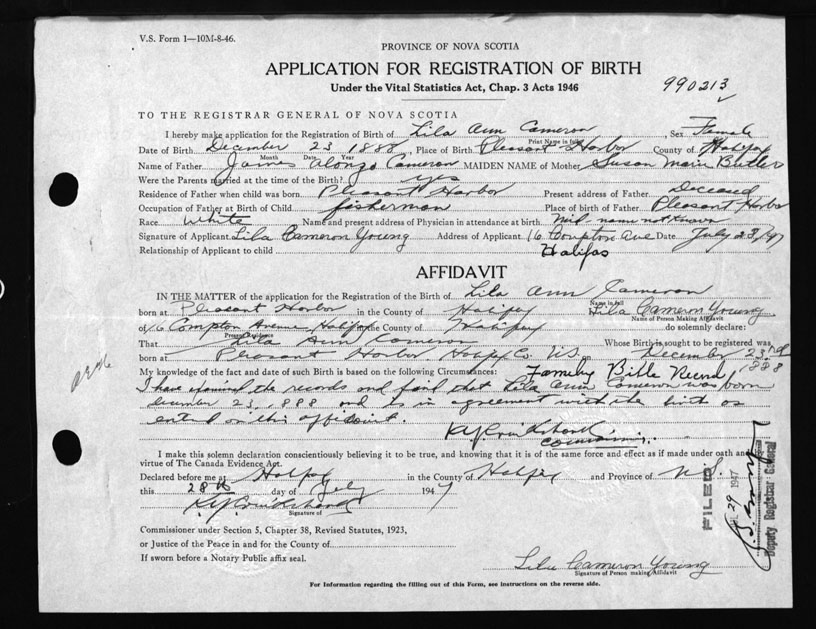 V.S. Form 1—10M-8-46.
PROVINCE OF NOVA SCOTIA
APPLICATION FOR REGISTRATION OF BIRTH
Under the Vital Statistics Act, Chap. 3 Acts 1946
990213
TO THE REGISTRAR GENERAL OF NOVA SCOTIA
I hereby make application for the Registration of Birth of Lila Ann Cameron Sex Female
Print Name in full
Date of Birth December 23 1888, Place of Birth Pleasant Harbor County of Halifax
Month Date Year
Name of Father James Alonzo Cameron MAIDEN NAME of Mother Susan Marie Butler
Were the Parents married at the time of the Birth? yes
Residence of Father when child was born Pleasant Harbor Present address of Father Deceased
Occupation of Father at Birth of Child fisherman Place of birth of Father Pleasant Harbor
Race White Name and present address of Physician in attendance at birth name not known
Signature of Applicant Lila Cameron Young Address of Applicant 16 Compton Ave Date July 23/47
Relationship of Applicant to child Halifax
AFFIDAVIT
IN THE MATTER of the application for the Registration of the Birth of Lila Ann Cameron
Name in full
born at Pleasant Harbor in the County of Halifax Lila Cameron Young
Name of Person Making Affidavit
of 16 Compton Avenue Halifax in the County of Halifax do solemnly declare:
Present Residence
That Lila Ann Cameron Whose Birth is sought to be registered was
born at Pleasant Harbor Hfx Co. N.S. on December 23rd
1888
My knowledge of the fact and date of such Birth is based on the following Circumstances: Family Bible Record
I have examined the records and find that Lila Ann Cameron was born
December 23, 1888 and is in agreement with the birth as
entered on this affidavit.
I make this solemn declaration conscientiously believing it to be true, and knowing that it is of the same force and effect as if made under oath and by
virtue of The Canada Evidence Act.
Declared before me at Halifax in the County of Halifax and Province of N.S.
this 28th day of July 1947
Signature of
Commissioner under Section 5, Chapter 38, Revised Statutes, 1923,
or Justice of the Peace in and for the County of
If sworn before a Notary Public affix seal.
Lila Cameron Young
Signature of Person making Affidavit
For Information regarding the filling out of this Form, see instructions on the reverse side.
FILED
29 1947
Deputy Registrar General